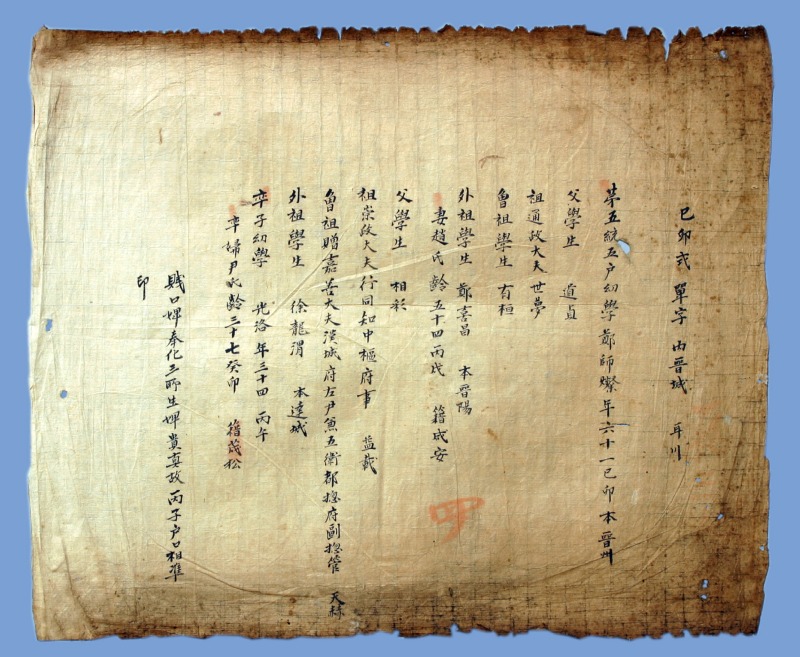 己卯式 單字 內晋城 耳川
第五統五戶幼學鄭師燦年六十一己卯本晋州
父學生 道貞
祖通政大夫 世夢
曾祖學生 有桓
外祖學生 鄭喜昌 本晋陽
妻趙氏齡五十四丙戌 籍咸安
父學生 相彩
祖崇政大夫行同知中樞府事 益載
曾祖贈嘉善大夫漢城府左尹兼五衛都摠府副摠管 天赫
外祖學生 徐龍渭 本達城
率子幼學 光洛 年三十四 丙午
率婦尹氏齡三十七癸卯 籍茂松
賤口婢奉化三所生婢貴真故 丙子戶口相準
印